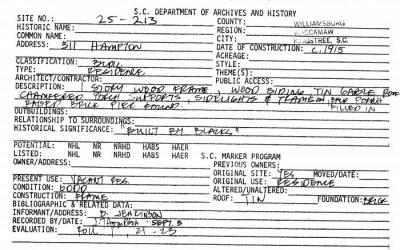 S.C. DEPARTMENT OF ARCHIVES AND HISTORY
SITE NO.: 25-213 COUNTY: WILLIAMSBURG
HISTORIC NAME: REGION: WACCAMAW
COMMON NAME: CITY: KINGSTREE, S.C.
ADDRESS: 311 HAMPTON DATE OF CONSTRUCTION: c. 1915
ACREAGE:
CLASSIFICATION: BLDG. STYLE:
TYPE: RESIDENCE THEME(S):
ARCHITECT/CONTRACTOR: PUBLIC ACCESS:
DESCRIPTION: STORY WOOD FRAME, WOOD SIDING, TIN GABLE ROOF
CHAMFERED PORCH SUPPORTS, SIDELIGHTS & TRANSOM, PORCH
RAISED BRICK PIER FOUND. FILLED IN
OUTBUILDINGS:
RELATIONSHIP TO SURROUNDINGS:
HISTORICAL SIGNIFICANCE: "BUILT BY BLACKS"
POTENTIAL: NHL NR NRHD HABS HAER
LISTED: NHL NR NRHD HABS HAER S.C. MARKER PROGRAM
OWNER/ADDRESS: PREVIOUS OWNERS:
ORIGINAL SITE: YES MOVED/DATE:
PRESENT USE: VACANT RES. ORIGINAL USE: RESIDENCE
CONDITION: GOOD ALTERED/UNALTERED:
CONSTRUCTION: FRAME ROOF: TIN FOUNDATION: BRICK
BIBLIOGRAPHIC & RELATED DATA:
INFORMANT/ADDRESS: D. JENKINSON
RECORDED BY/DATE: SEPT.
EVALUATION: ROLL 21-23